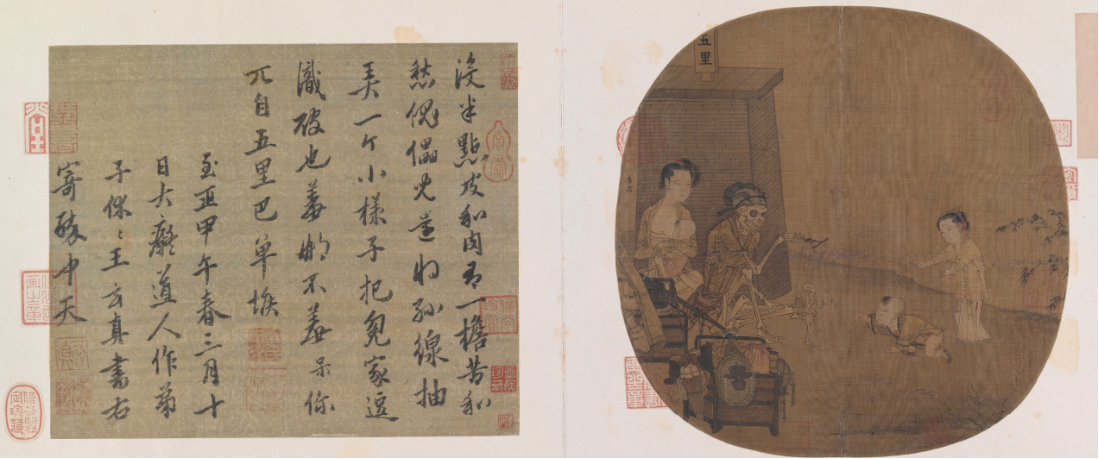 沒半點皮和肉有一檐苦和
愁傀儡兒還將絲線抽
弄一个小樣子把冤家逗
識破也羞那不羞呆你
兀自五里巴單堠
至正甲午春三月十
日大癡道人作弟
子休〻王玄真書右
寄醉中天
五里